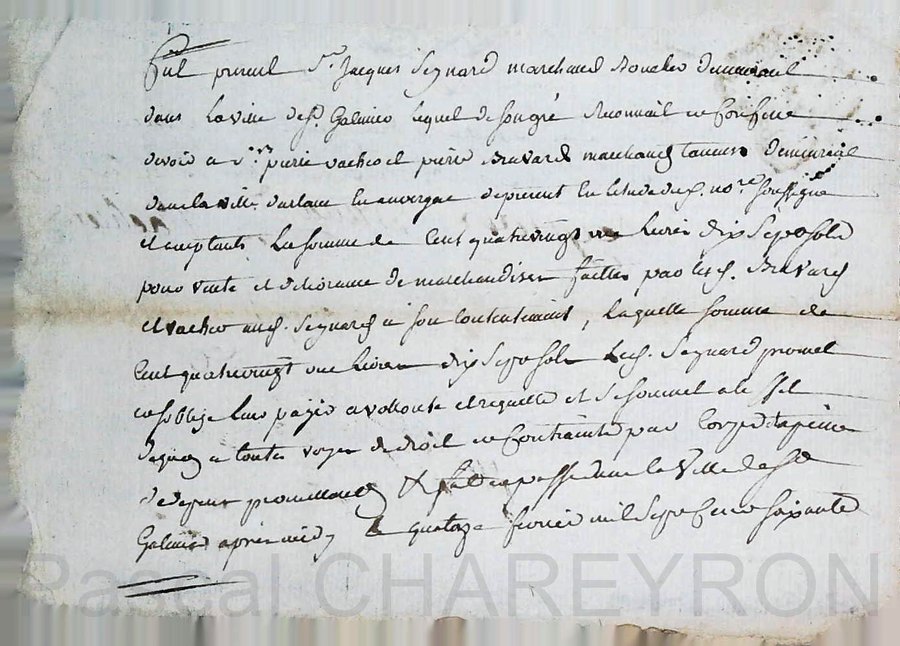 fut present Sr Jacques Seynard marchand demeurant
dans la ville de St Galmier lequel de son gré
devoir a Srs pierre vacher et pierre Bravard marchands tanneurs demeurant
dans la ville darlanc en auvergne depresent en letude du d. nore soussigné
et acceptants la somme de Cent quatrevingt une livres dix sept sols
pour vente et délivrance de marchandises faittes par lesd. Bravard
et vacher aud. Seynard a son Contentement, laquelle somme de
Cent quatrevingt une livres dix sept sols led. Seynard promet
et soblige leur payer a vollonté et requette et
a toutes voyes de droit et Contrainte par Corps a peine
de depens fait et passé dans la Ville de St
Galmier apres midy le quatorze fevrier mil sept Cent soixante
Pascal CHAREYRON